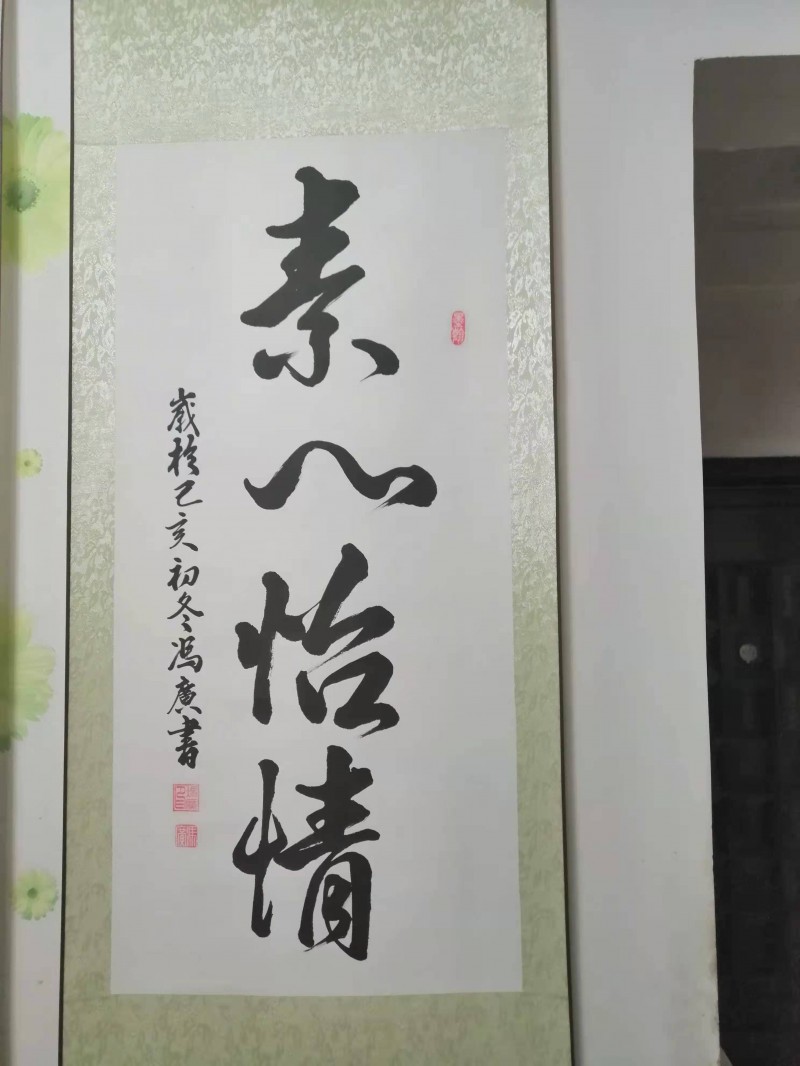 素心怡情
歲於己亥初冬馮廣書